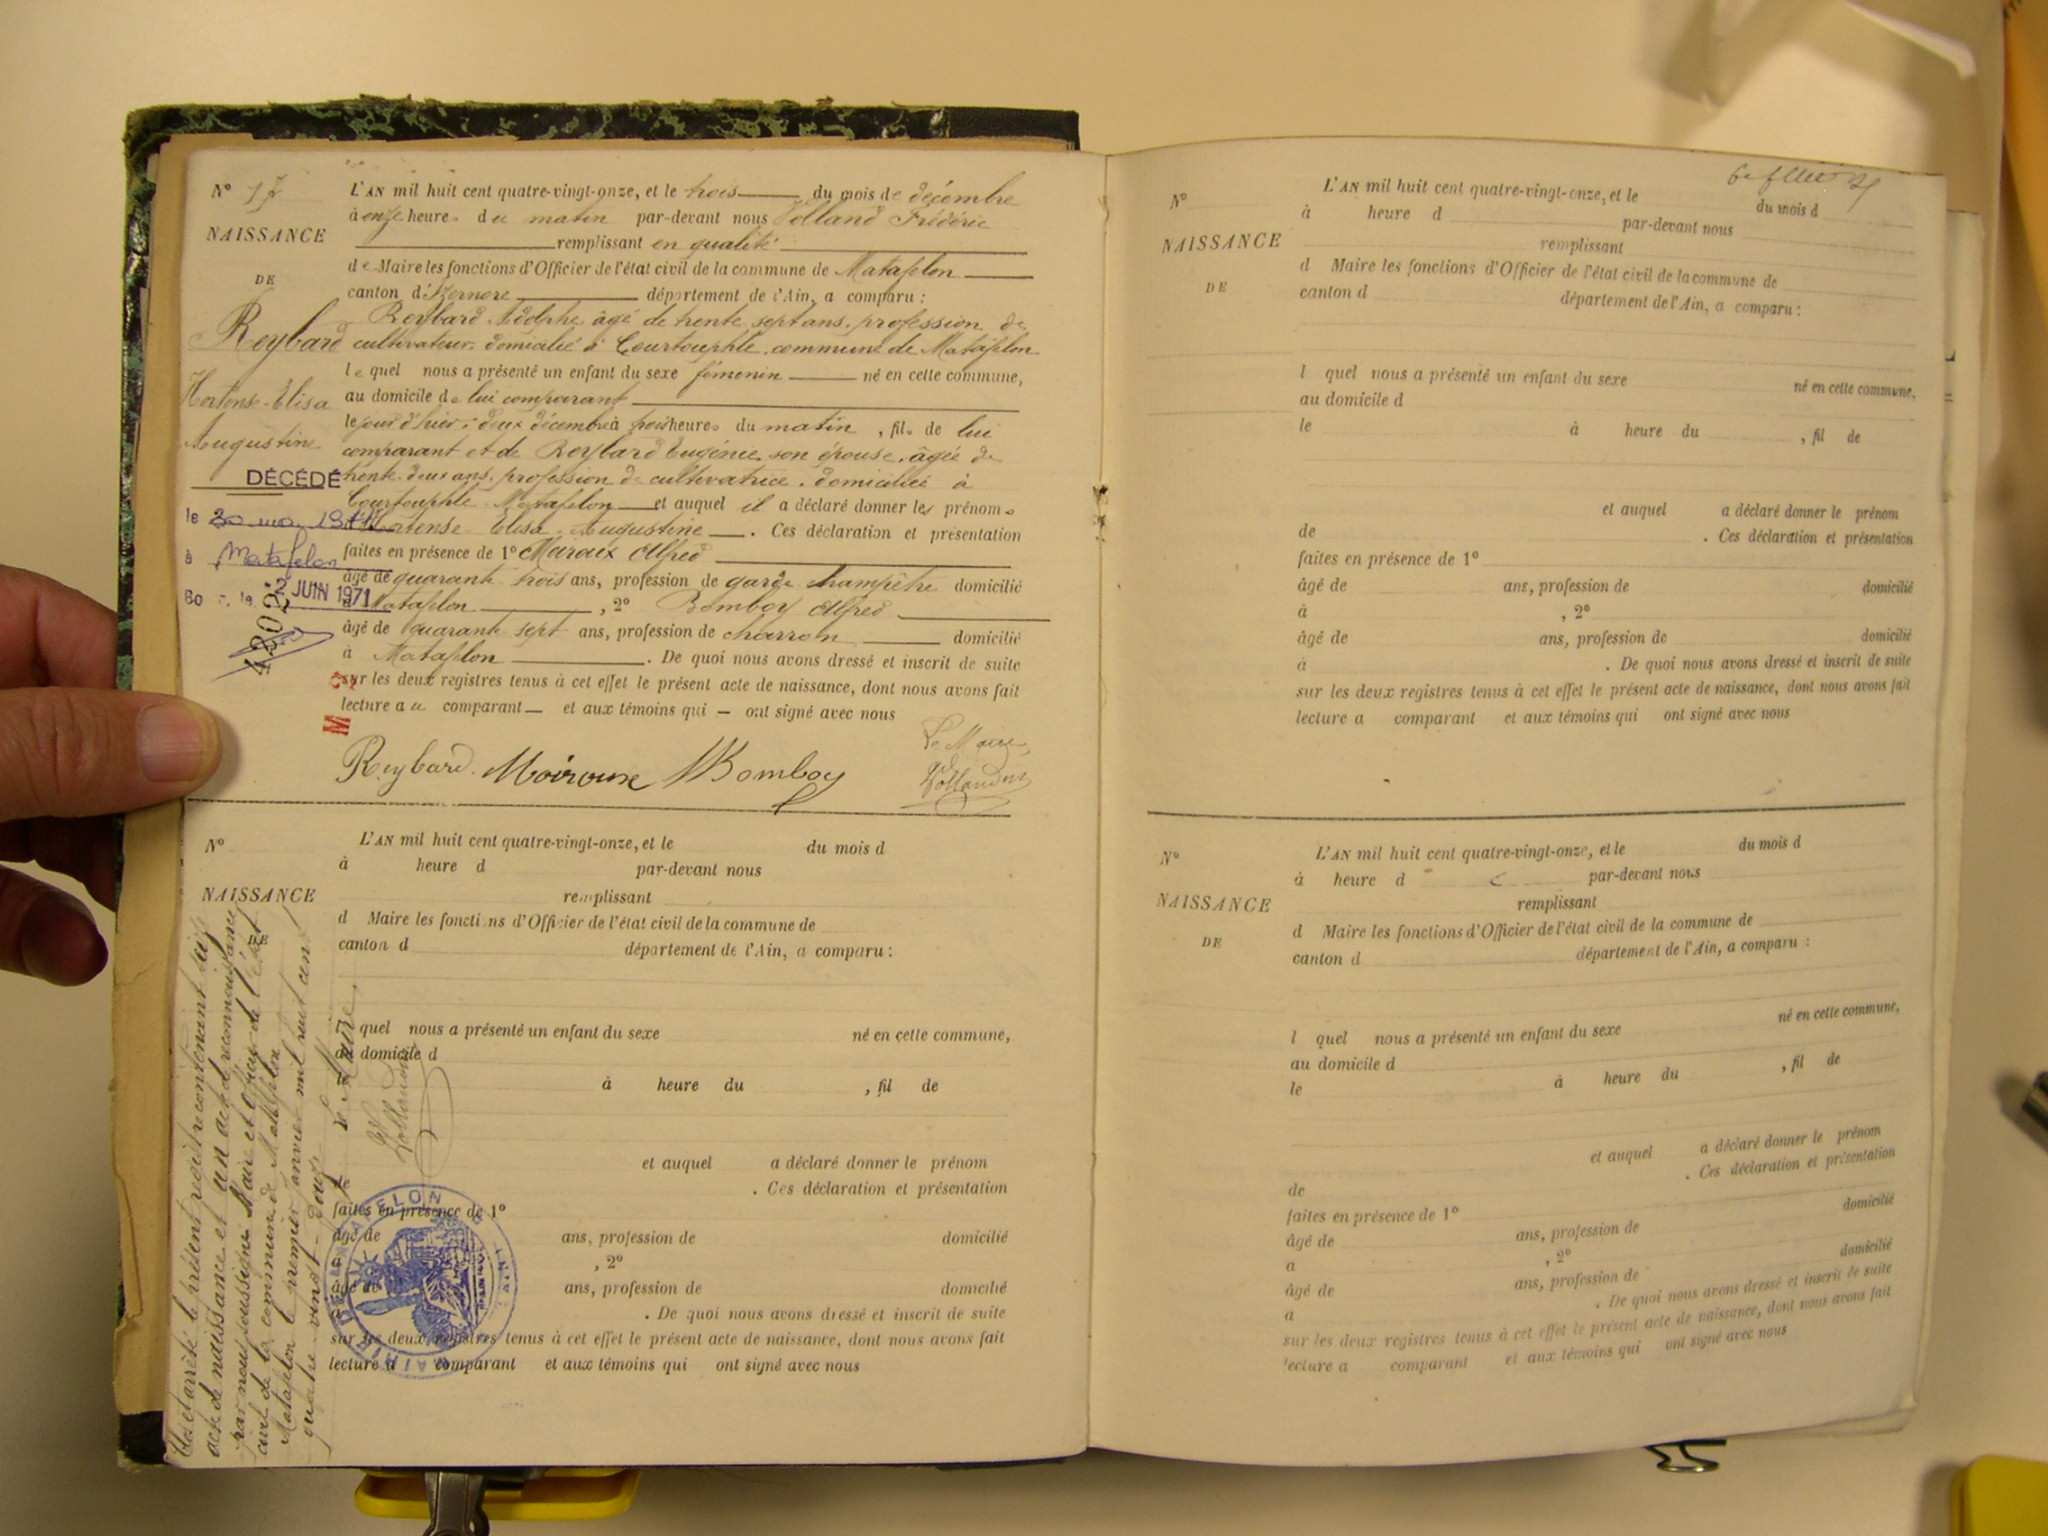 N° 17
NAISSANCE
DE
Reybard
Hortens-Elisa
Augustine
DÉCÉDÉ
le 30 mai
à Matafelon
le -2 JUIN 1971
L'AN mil huit cent quatre-vingt-onze, et le trois du mois de décembre
à onze heures du matin par-devant nous Volland Frédéric
remplissant en qualité
de Maire les fonctions d'Officier de l'état civil de la commune de Matafelon
canton d'Izernore département de l'Ain, a comparu :
Reybard Adolphe âgé de trente sept ans, profession de
cultivateur, domicilié à Courtouphle, commune de Matafelon
lequel nous a présenté un enfant du sexe féminin né en cette commune,
au domicile de lui comparant
le jour d'hier, deux décembre à trois heures du matin, fils de lui
comparant et de Reybard Eugénie son épouse, âgée de
trente-deux ans, profession de cultivatrice, domiciliée à
Courtouphle Matafelon et auquel il a déclaré donner les prénoms
Hortense Elisa Augustine . Ces déclaration et présentation
faites en présence de 1° Alfred
âgé de quarante trois ans, profession de garde champêtre domicilié
à Matafelon , 2° Bomboy Alfred
âgé de quarante sept ans, profession de charron domicilié
à Matafelon . De quoi nous avons dressé et inscrit de suite
sur les deux registres tenus à cet effet le présent acte de naissance, dont nous avons fait
lecture au comparant et aux témoins qui ont signé avec nous
Le Maire,
Reybard Bomboy Volland
N°
NAISSANCE
DE
L'AN mil huit cent quatre-vingt-onze, et le du mois d
à heure d par-devant nous
remplissant
d Maire les fonctions d'Officier de l'état civil de la commune de
canton d département de l'Ain, a comparu :
l quel nous a présenté un enfant du sexe né en cette commune,
au domicile d
à heure du , fil de
et auquel a déclaré donner le prénom
de . Ces déclaration et présentation
faites en présence de 1°
âgé de ans, profession de domicilié
à , 2°
âgé de ans, profession de domicilié
à . De quoi nous avons dressé et inscrit de suite
sur les deux registres tenus à cet effet le présent acte de naissance, dont nous avons fait
lecture a comparant et aux témoins qui ont signé avec nous
Clos et arrêté le présent registre contenant
acte de naissance et un acte de reconnaissance
par nous soussigné Maire et officier de l'état
civil de la commune de Matafelon
Matafelon le premier janvier mil huit cent
quatre-vingt-douze
Le Maire,
Volland
MAIRIE DE MATAFELON
N°
NAISSANCE
DE
L'AN mil huit cent quatre-vingt-onze, et le du mois d
à heure d par-devant nous
remplissant
d Maire les fonctions d'Officier de l'état civil de la commune de
canton d département de l'Ain, a comparu :
l quel nous a présenté un enfant du sexe né en cette commune,
au domicile d
le à heure du , fil de
et auquel a déclaré donner le prénom
de . Ces déclaration et présentation
faites en présence de 1°
âgé de ans, profession de domicilié
à , 2°
âgé de ans, profession de domicilié
à . De quoi nous avons dressé et inscrit de suite
sur les deux registres tenus à cet effet le présent acte de naissance, dont nous avons fait
lecture a comparant et aux témoins qui ont signé avec nous
N°
NAISSANCE
DE
L'AN mil huit cent quatre-vingt-onze, et le du mois d
à heure d par-devant nous
remplissant
d Maire les fonctions d'Officier de l'état civil de la commune de
canton d département de l'Ain, a comparu :
l quel nous a présenté un enfant du sexe né en cette commune,
au domicile d
le à heure du , fil de
et auquel a déclaré donner le prénom
de . Ces déclaration et présentation
faites en présence de 1°
âgé de ans, profession de domicilié
a , 2°
âgé de ans, profession de domicilié
a . De quoi nous avons dressé et inscrit de suite
sur les deux registres tenus à cet effet le présent acte de naissance, dont nous avons fait
lecture a comparant et aux témoins qui ont signé avec nous